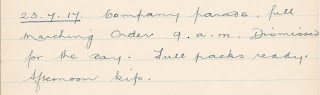 23.7.17. Company parade, full
marching Order 9 a.m. Dismissed
for the day. Full packs ready.
Afternoon kip.